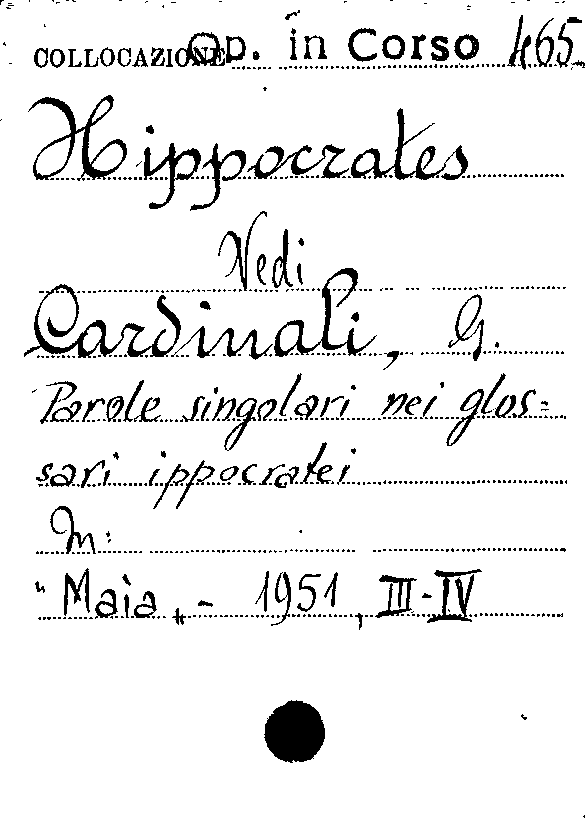 COLLOCAZIONE Op. in Corso 465
Hippocrates
Vedi
Cardinali, G.
Parole singolari nei glos=
sari ippocratei
In:
"Maia„ - 1951, III-IV